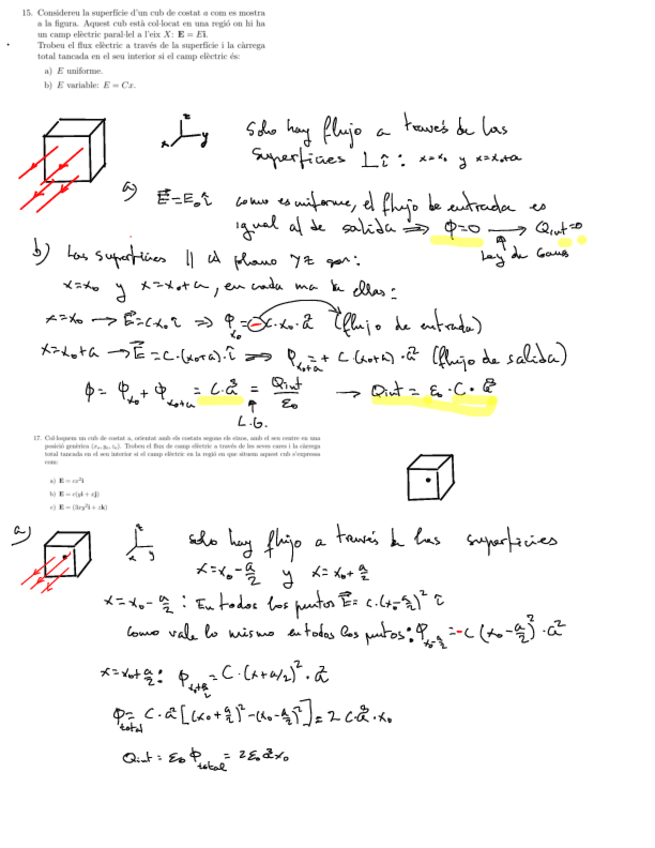 15. Considereu la superfície d'un cub de costat a com es mostra
a la figura. Aquest cub està col·locat en una regió on hi ha
un camp elèctric paral·lel a l'eix X: E = Eî.
Trobeu el flux elèctric a través de la superfície i la càrrega
total tancada en el seu interior si el camp elèctric és:
a) E uniforme.
b) E variable: E = Cx.
z
x y
Solo hay flujo a través de las
superficies ⊥ î : x=x₀ y x=x₀+a
a) E⃗=E₀î como es uniforme, el flujo de entrada es
igual al de salida ⇒ φ=0 → Qint=0
Ley de Gauss
b) Las superficies || al plano YZ son:
x=x₀ y x=x₀+a, en cada una de ellas:
x=x₀ → E⃗=Cx₀î ⇒ φx₀=-C·x₀·a² (flujo de entrada)
x=x₀+a → E⃗=C·(x₀+a)·î ⇒ φx₀+a=+C(x₀+a)·a² (flujo de salida)
φ= φx₀+φx₀+a = C·a³ = Qint/ε₀ → Qint = ε₀·C·a³
L.G.
17. Col·loquem un cub de costat a, orientat amb els costats segons els eixos, amb el seu centre en una
posició genèrica (x₀, y₀, z₀). Trobeu el flux de camp elèctric a través de les seves cares i la càrrega
total tancada en el seu interior si el camp elèctric en la regió on que situem aquest cub s'expressa
com:
a) E = cx²î
b) E = c(yî + xĵ)
c) E = (3xy²î + zk)
a)
z
x y
solo hay flujo a través de las superficies
x=x₀-a/2 y x=x₀+a/2
x=x₀-a/2 : En todos los puntos E⃗= c·(x₀-a/2)² î
como vale lo mismo en todos los puntos: φx₀-a/2=-c(x₀-a/2)²·a²
x=x₀+a/2: φx₀+a/2=C·(x+a/2)²·a²
φtotal= C·a²[(x₀+a/2)²-(x₀-a/2)²]=2ca³·x₀
Qint= ε₀ φtotal = 2ε₀a³x₀